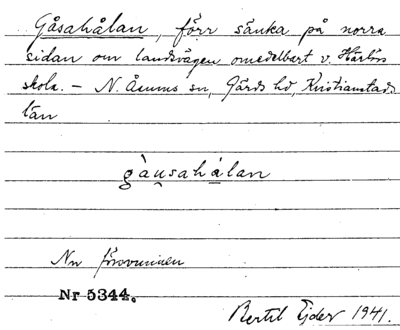 Gåsahålan, förr sänka på norra
sidan om landsvägen omedelbart v. Härlövs
skola. – N. Åsums sn, Gärds hd, Kristianstads
län
gàu̯sahàlan
Nu försvunnen
Nr 5344.
Bertil Ejder 1941.